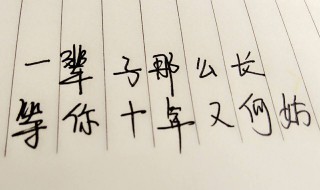 一辈子那么长
等你十年又何妨